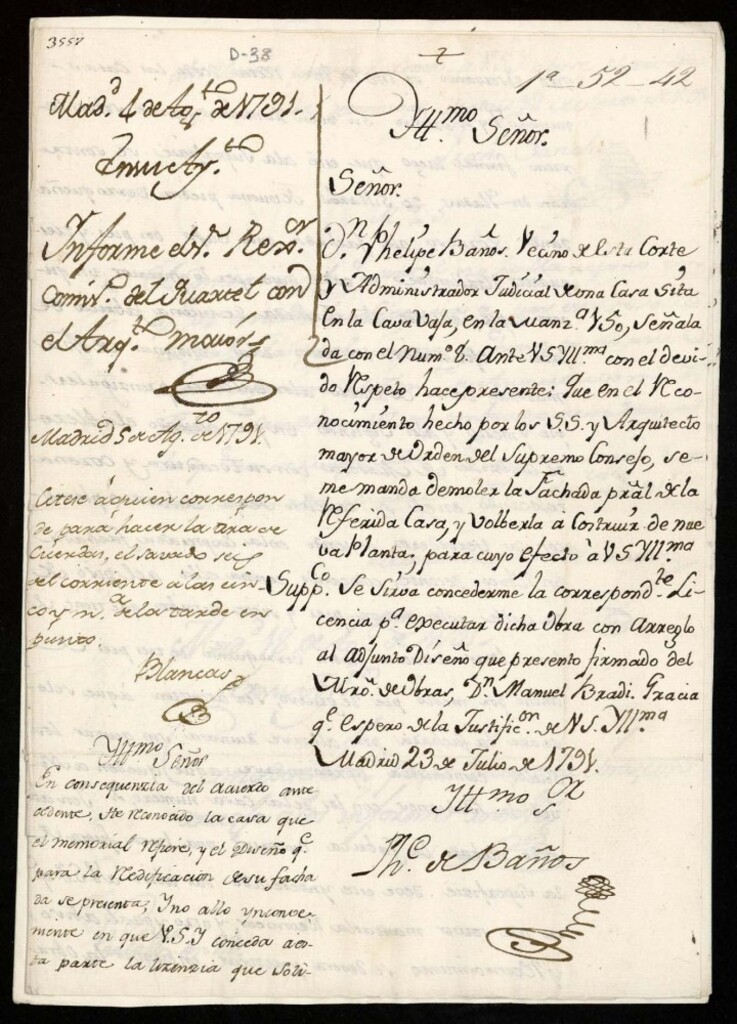 3557
D-38
1ª 52-42
Mad.d 4 de Ag.to de 1791.
En su Ay.to
Informe el S.r Rex.or
Comis.º del Quartel con
el Arq.to mayor
Madrid 5 de Ag.to de 1791.
Citese á quien correspon
de para hacer la tira de
Cuerdas, el savado seis
del corriente a las cin-
co y m.ª de la tarde en
punto.
Blancas
Yttmo Señor
En consequenzia del acuerdo ante
cedente, He reconocido la casa que
el memorial refiere, y el Diseño q.e
para la Redificacion de su facha
da se presenta, Y no allo ynconve-
niente en que V.S.Y conceda a es-
ta parte la lizenzia que Soli-
Yttmo Señor.
Señor.
D.n Phelipe Baños. Vecino de Esta Corte
y Administrador Judicial de una Casa sita
en la Cava vaja, en la Manz.ª 150, señala
da con el Num.º 8. Ante VSYll.ma con el devi-
do Respeto hace presente: Que en el Reco-
nocimiento hecho por los S.S. y Arquitecto
mayor de Orden del Supremo Consejo, se-
me manda demoler la Fachada pral de la
Referida Casa, y Volberla á Contruir de nue
va Planta; para cuyo efecto à VSYll.ma
Supp.co Se sirva concederme la correspond.te Li-
cencia p.ª executar dicha Obra con Arreglo
al adjunto Diseño que presento firmado del
Mro. de Obras, D.n Manuel Bradi. Gracia
q.e espero de la Justific.on de VS. Yll.ma
Madrid 23 de Julio de 1791.
Yttmo S.or
Ph.e de Baños